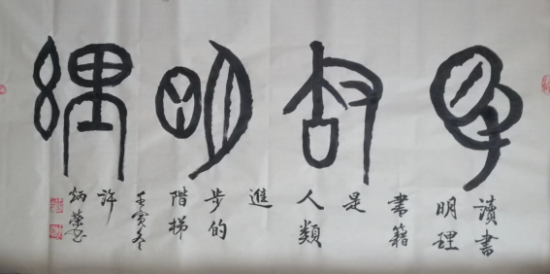 明理
讀書
明理
書籍
是
人類
進
步的
階梯
壬寅冬
許
炳榮書